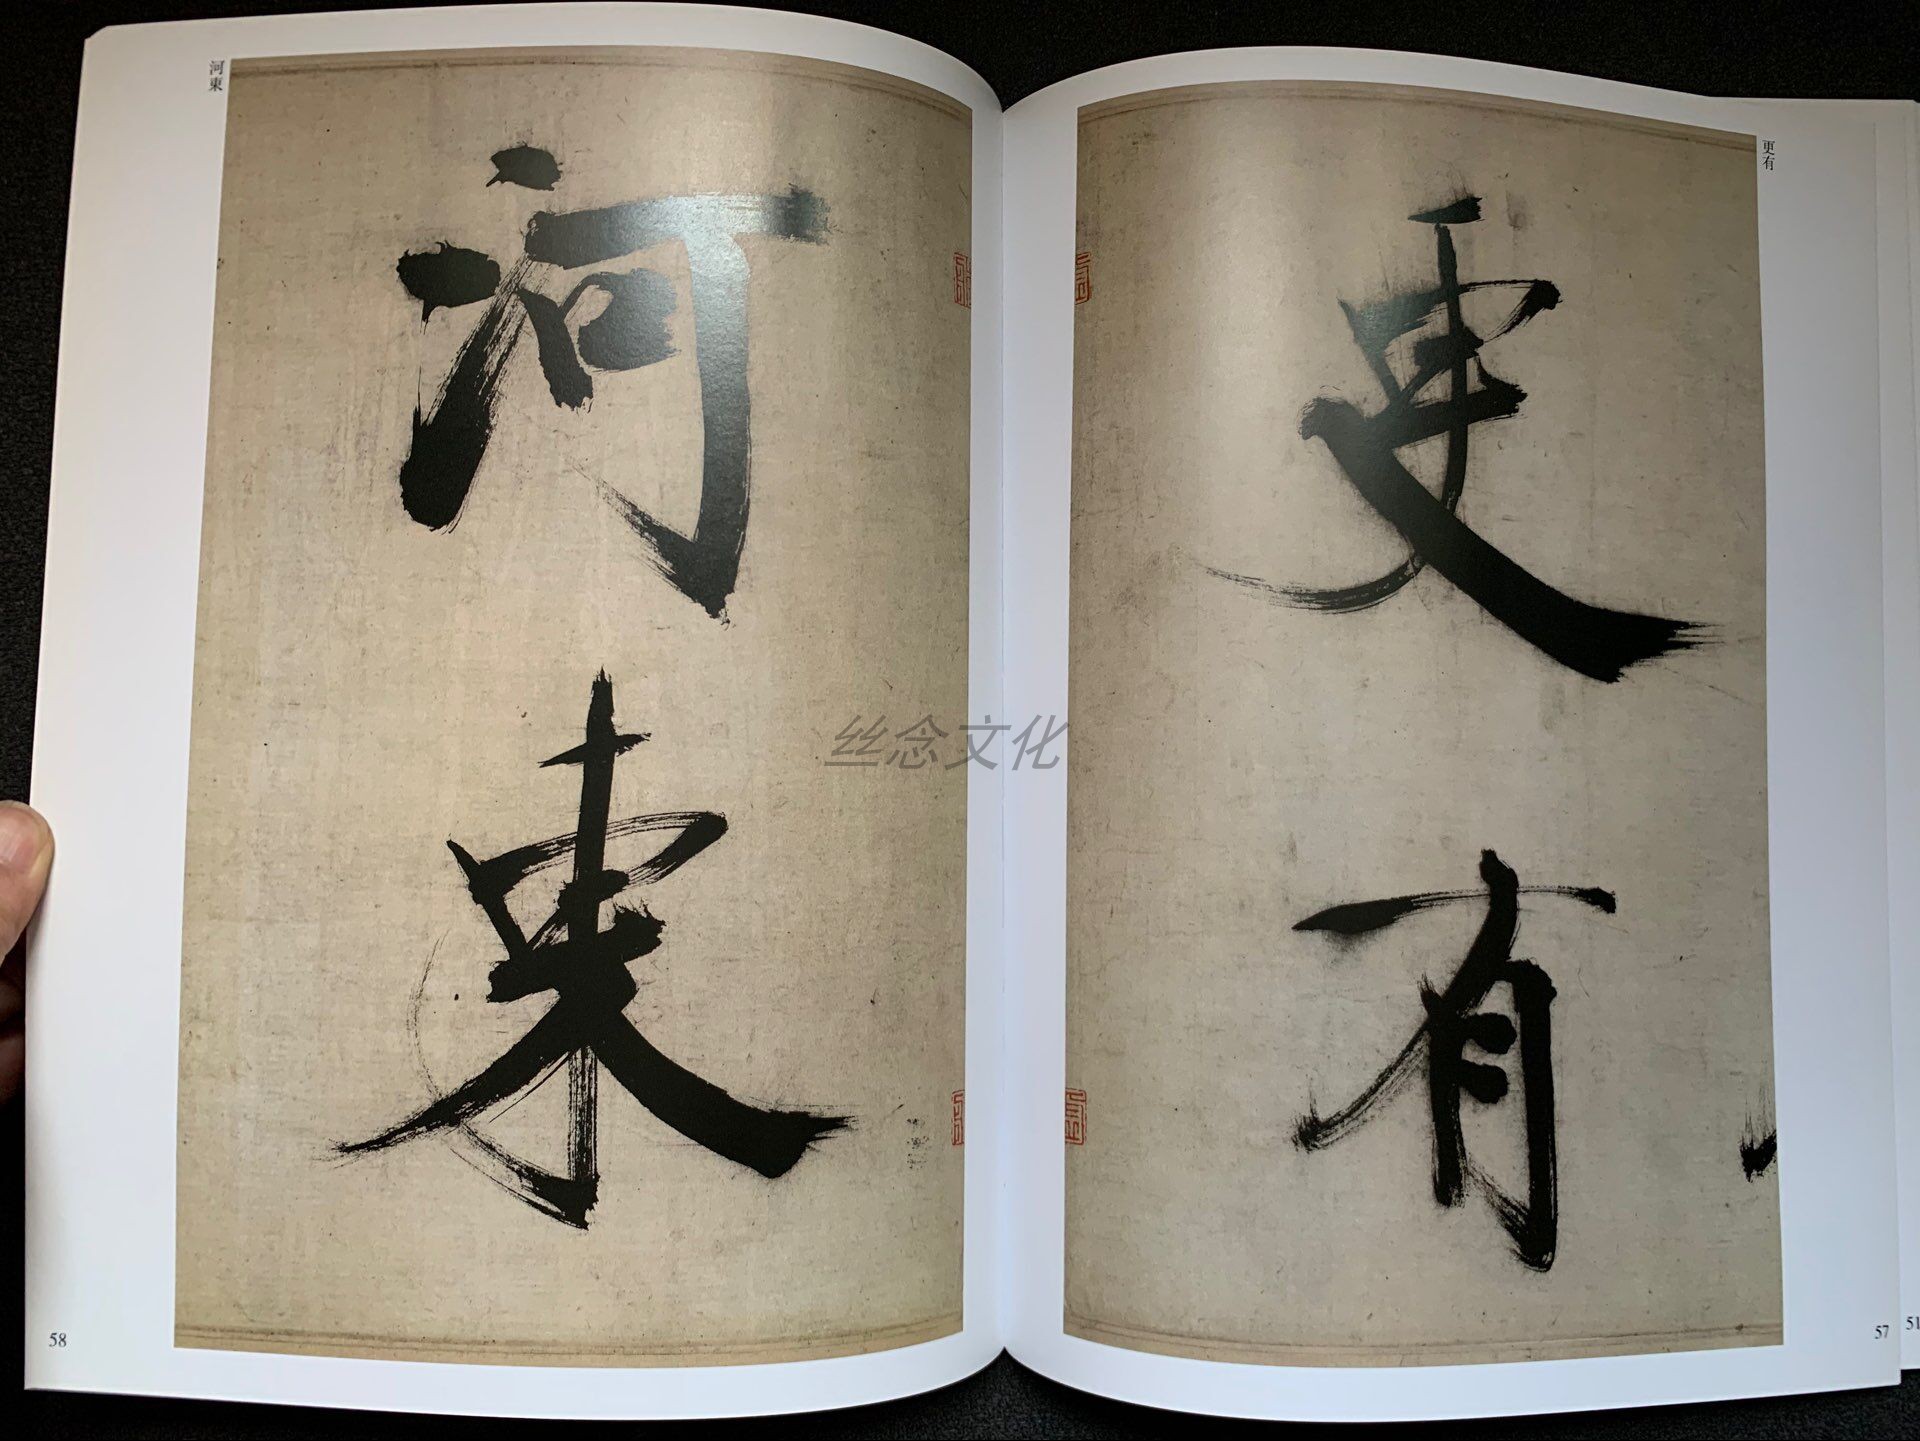 更有
更有
57
51
河東
河東
58
丝念文化